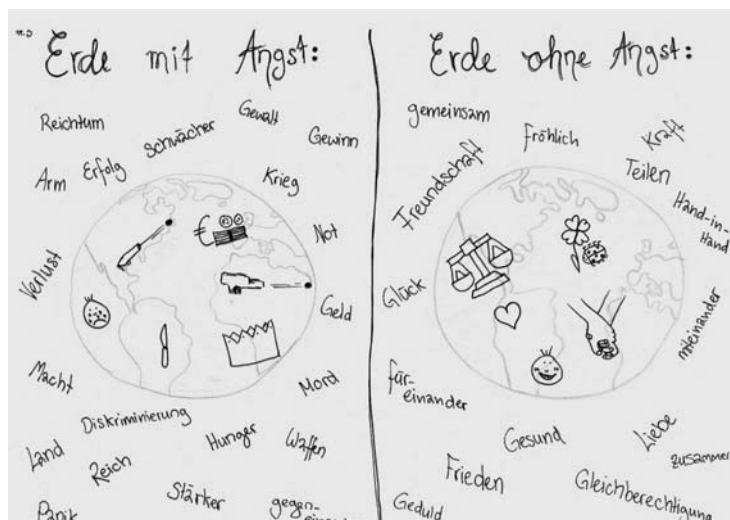 Erde mit Angst:
Reichtum
Schwächer
Gewalt
Gewinn
Arm
Erfolg
Krieg
Not
Verlust
€
Geld
Macht
Mord
Diskriminierung
Land
Reich
Hunger
Waffen
Panik
Stärker
gegen-
Erde ohne Angst:
gemeinsam
Fröhlich
Kraft
Freundschaft
Teilen
Hand-in-
Hand
Glück
miteinander
für-
einander
Gesund
Liebe
zusammen
Frieden
Gleichberechtigung
Geduld